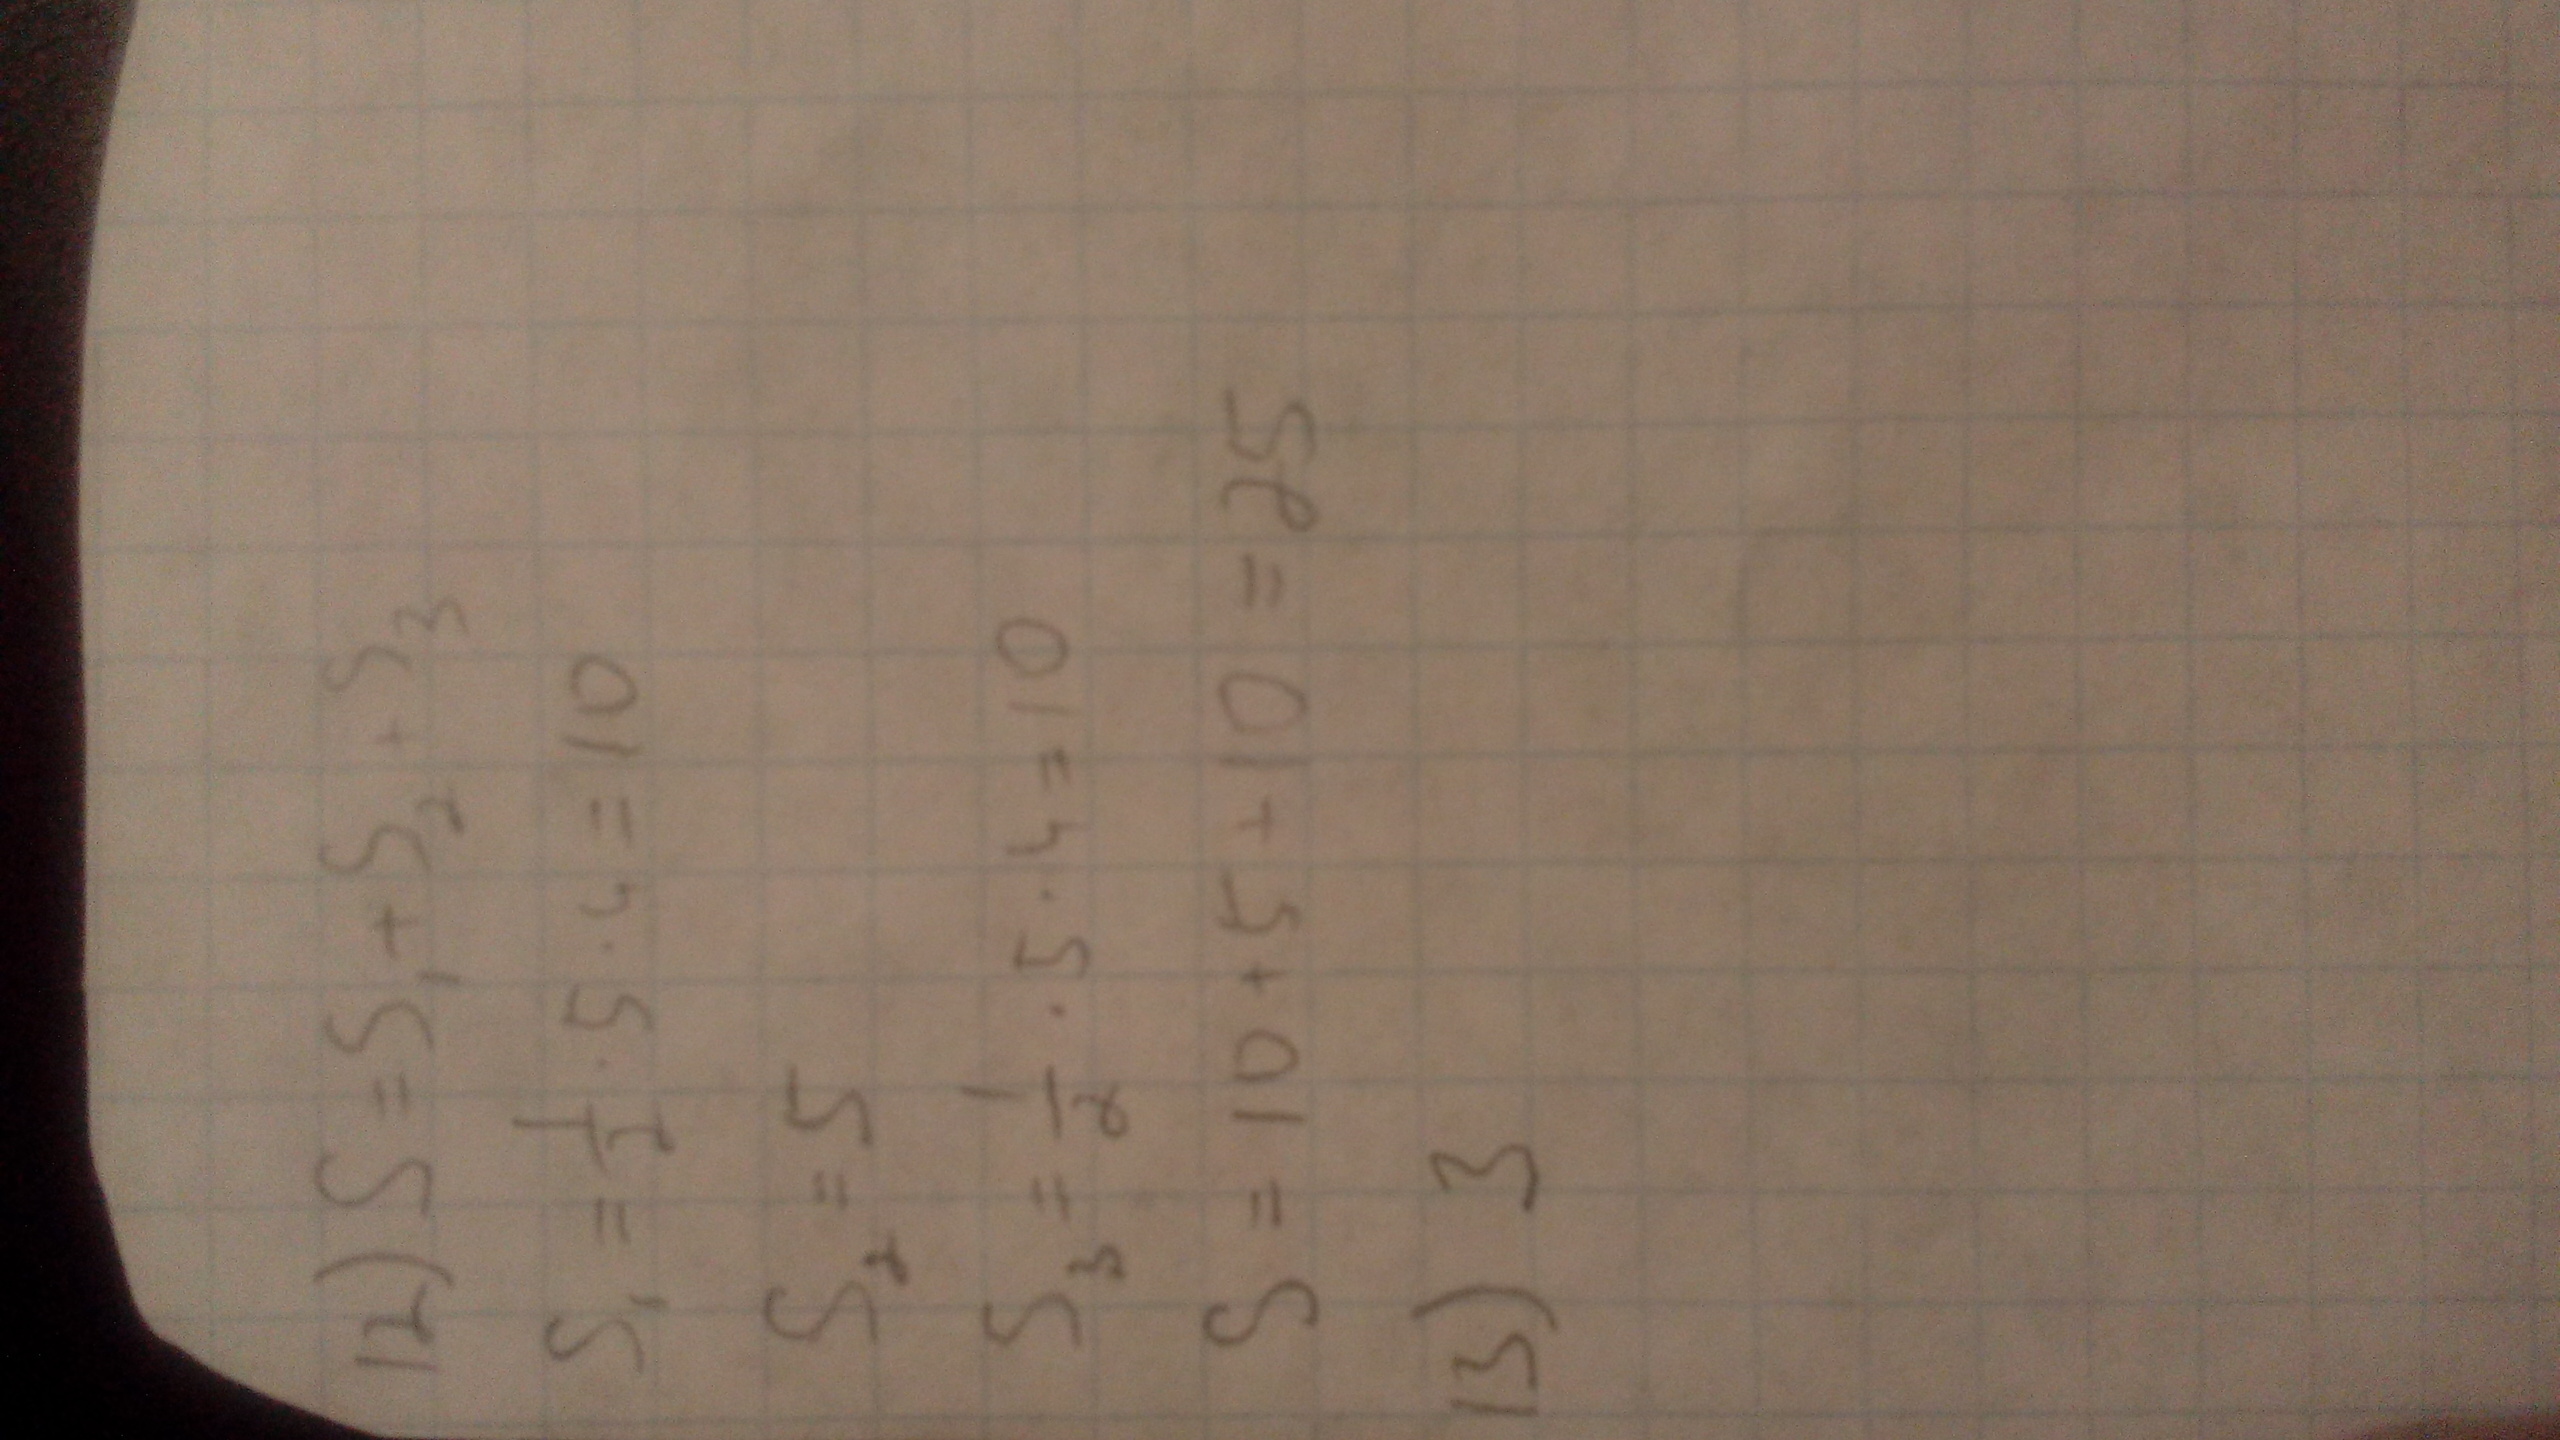 12) S = S₁ + S₂ + S₃
S₁ = 1/2 · 5 · 4 = 10
S₂ = 5
S₃ = 1/2 · 5 · 4 = 10
S = 10 + 5 + 10 = 25
13) 3